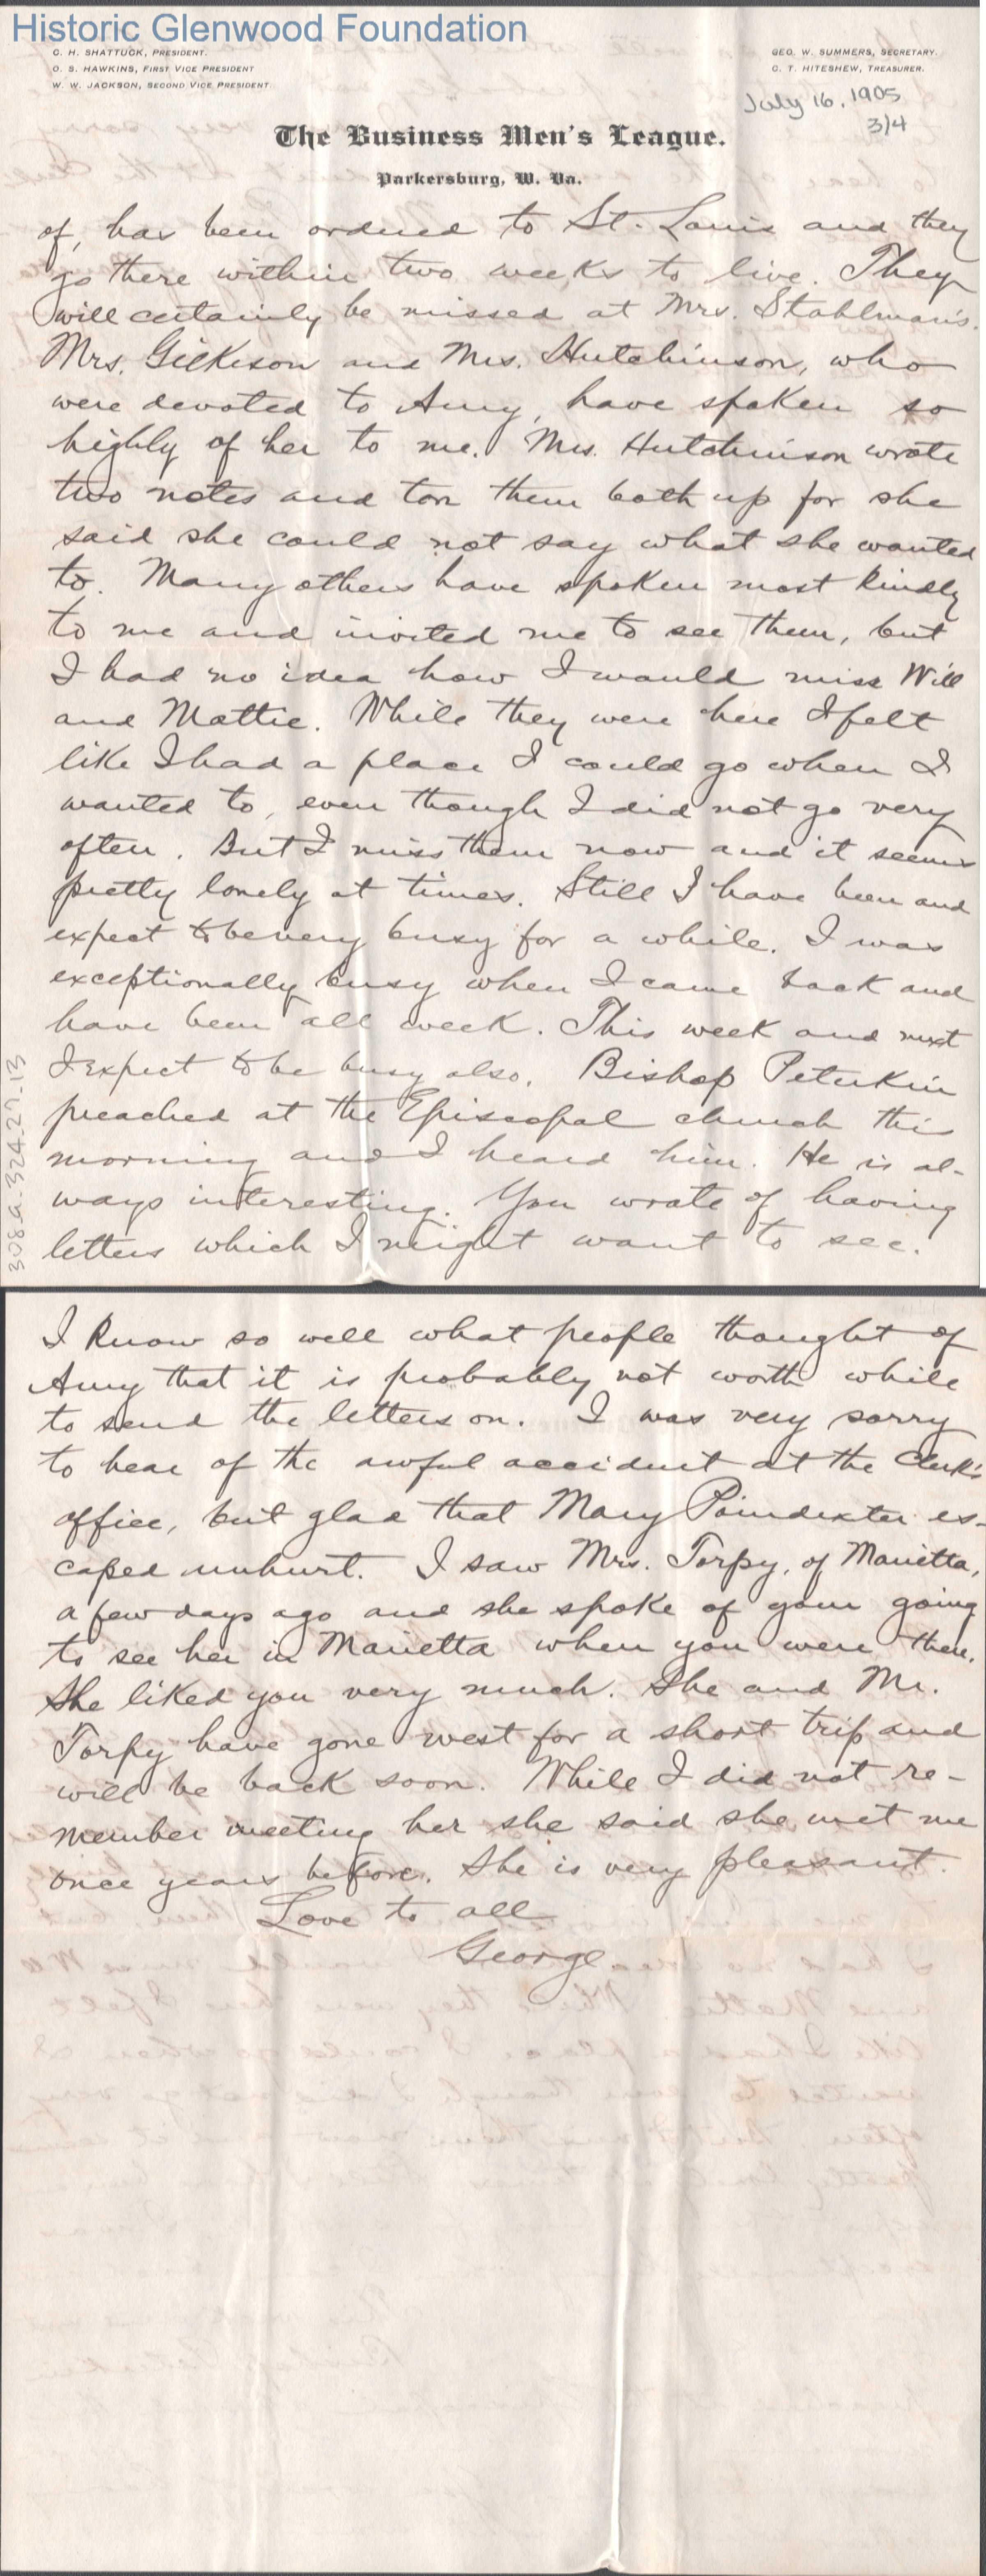 Historic Glenwood Foundation
C. H. SHATTUCK, PRESIDENT.
O. S. HAWKINS, FIRST VICE PRESIDENT
W. W. JACKSON, SECOND VICE PRESIDENT
GEO. W. SUMMERS, SECRETARY.
C. T. HITESHEW, TREASURER.
July 16, 1905
3/4
The Business Men's League.
Parkersburg, W. Va.
of, has been ordered to St. Louis and they
go there within two weeks to live. They
will certainly be missed at Mrs. Stahlman's.
Mrs. Gilkeson and Mrs. Hutchinson, who
were devoted to Amy, have spoken so
highly of her to me. Mrs. Hutchinson wrote
two notes and tore them both up for she
said she could not say what she wanted
to. Many others have spoken most kindly
to me and invited me to see them, but
I had no idea how I would miss Will
and Mattie. While they were here I felt
like I had a place I could go when I
wanted to, even though I did not go very
often. But I miss them now and it seems
pretty lonely at times. Still I have been and
expect to be very busy for a while. I was
exceptionally busy when I came back and
have been all week. This week and next
I expect to be busy also. Bishop Peterkin
preached at the Episcopal church this
morning and I heard him. He is al-
ways interesting. You wrote of having
letters which I might want to see.
308a.324.27.13
I know so well what people thought of
Amy that it is probably not worth while
to send the letters on. I was very sorry
to hear of the awful accident at the Clerk's
office, but glad that Mary Poindexter es-
caped unhurt. I saw Mrs. Torpy, of Marietta,
a few days ago and she spoke of your going
to see her in Marietta when you were there.
She liked you very much. She and Mr.
Torpy have gone west for a short trip and
will be back soon. While I did not re-
member meeting her she said she met me
once years before. She is very pleasant.
Love to all
George.